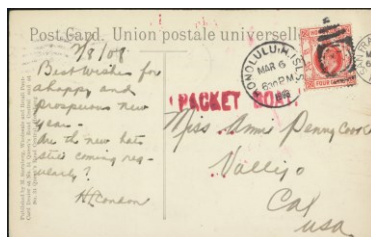 Post Card. Union postale universelle
2/8/09
Best wishes for
a happy and
prosperous new
year—
Are the new hats
still coming reg-
ularly?
HONOLULU, H. ISLS.
MAR 6
PM
PACKET BOAT
FOUR
Miss Annie Penny Cook
Vallejo
Cal
USA